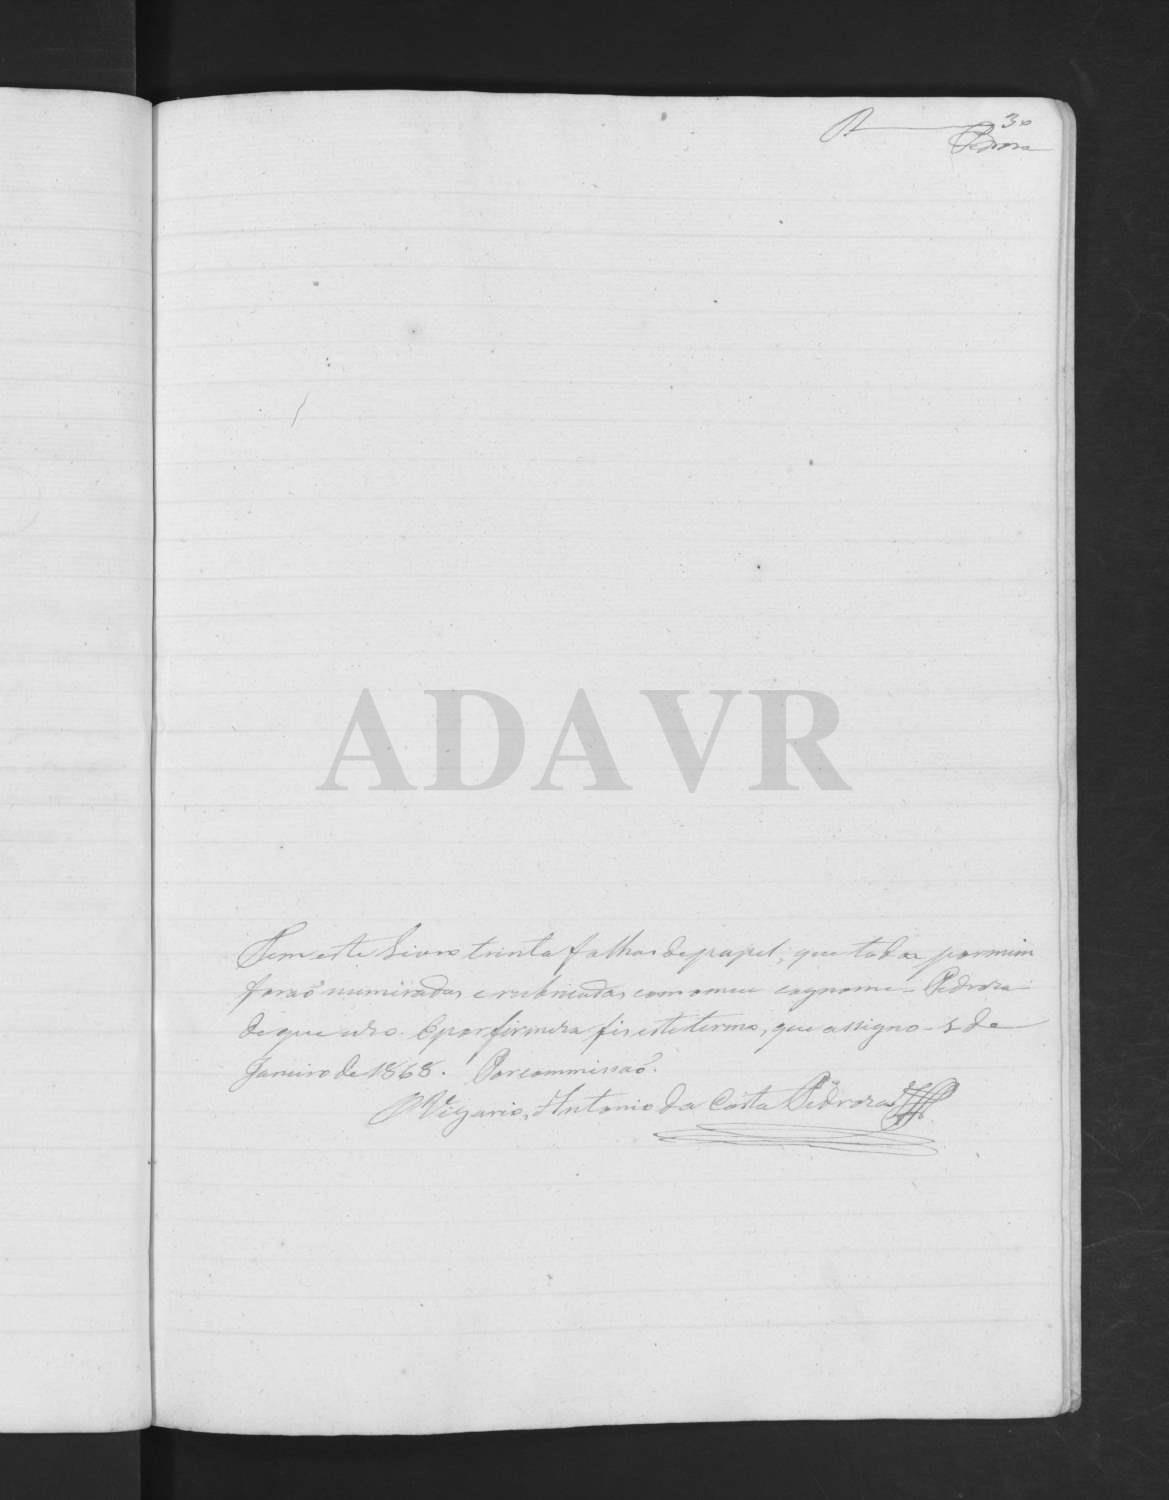 30
Pedroza
ADAVR
Tem este Livro trinta folhas de papel, que todas por mim
foraõ numiradas e rubricadas com o meu cognome - Pedroza -
de que uso. E por firmeza fis este termo, que assigno. de
Janeiro de 1868. Por commissaõ.
O Vigario, Antonio da Costa Pedroza